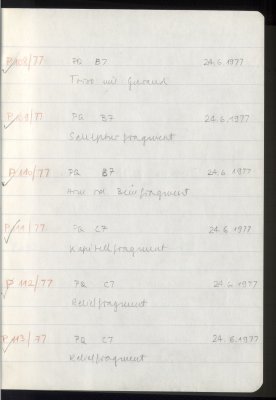 P108/77 PQ B7 24.6.1977
Torso mit Gewand
P109/77 PQ B7 24.6.1977
Sculpturfragment
P110/77 PQ B7 24.6.1977
Arm od Beinfragment
P111/77 PQ C7 24.6.1977
Kapitellfragment
P112/77 PQ C7 24.6.1977
Relieffragment
P113/77 PQ C7 24.6.1977
Relieffragment